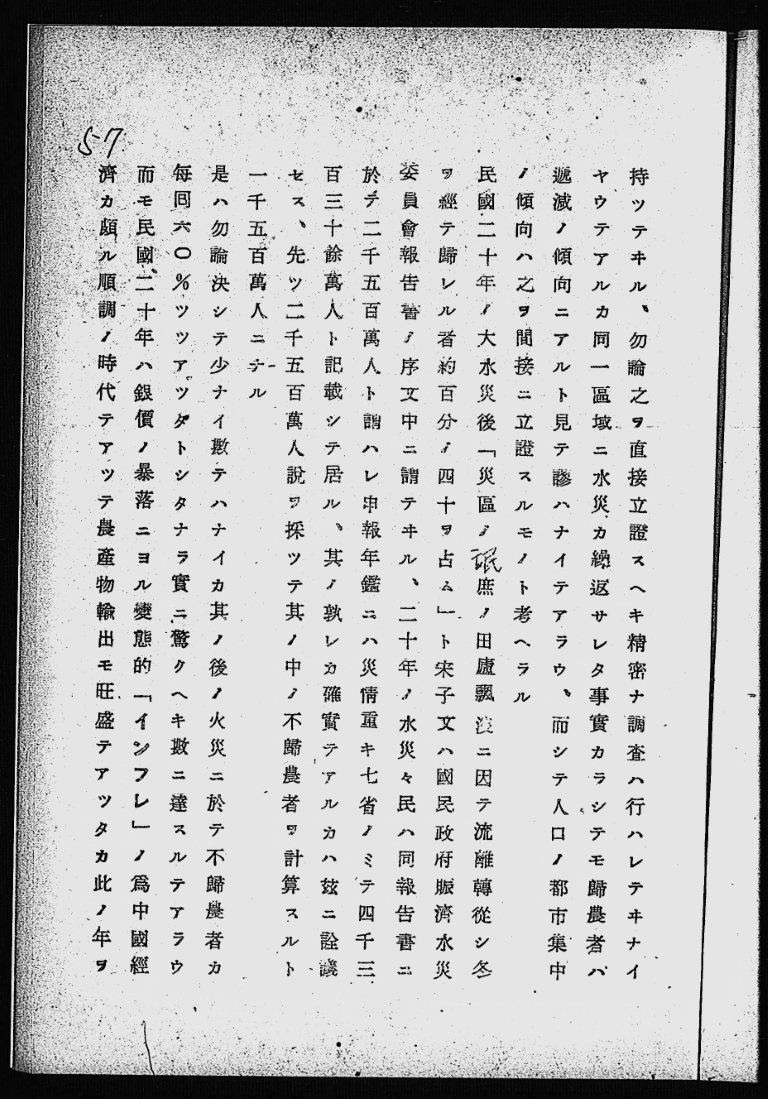 持ツテヰル、勿論之ヲ直接立證スヘキ精密ナ調査ハ行ハレテヰナイ
ヤウテアルカ同一區域ニ水災カ繰返サレタ事實カラシテモ歸農者ハ
遞減ノ傾向ニアルト見テ謬ハナイテアラウ、而シテ人口ノ都市集中
ノ傾向ハ之ヲ間接ニ立證スルモノト考ヘラル
民國二十年ノ大水災後「災區ノ氓庶ノ田廬飄沒ニ因テ流離轉從シ冬
ヲ經テ歸レル者約百分ノ四十ヲ占ム」ト宋子文ハ國民政府賑濟水災
委員會報告書ノ序文中ニ謂テヰル、二十年ノ水災々民ハ同報告書ニ
於テ二千五百萬人ト謂ハレ申報年鑑ニハ災情重キ七省ノミテ四千三
百三十餘萬人ト記載シテ居ル、其ノ孰レカ確實テアルカハ玆ニ詮議
セス、先ツ二千五百萬人說ヲ採ツテ其ノ中ノ不歸農者ヲ計算スルト
一千五百萬人ニナル
是ハ勿論決シテ少ナイ數テハナイカ其ノ後ノ火災ニ於テ不歸農者カ
每囘六〇％ツツアツタトシタナラ實ニ驚クヘキ數ニ達スルテアラウ
而モ民國二十年ハ銀價ノ暴落ニヨル變態的「インフレ」ノ爲中國經
濟カ頗ル順調ノ時代テアツテ農產物輸出モ旺盛テアツタカ此ノ年ヲ
57